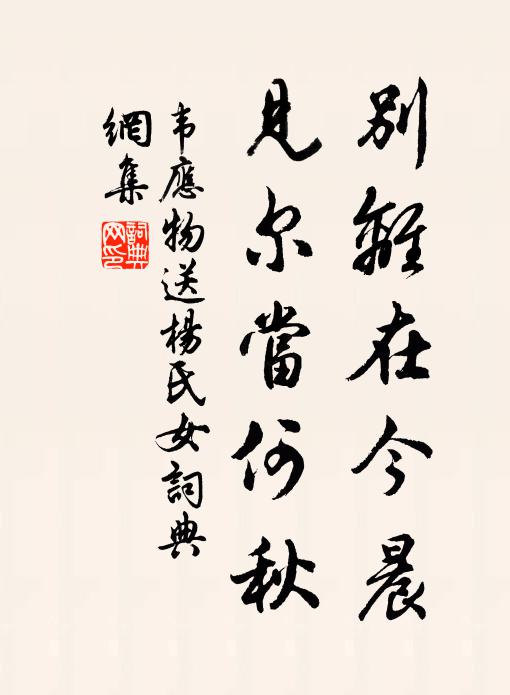 别離在今晨
見尔當何秋
韦應物送楊氏女詞典
網集
詞典網印